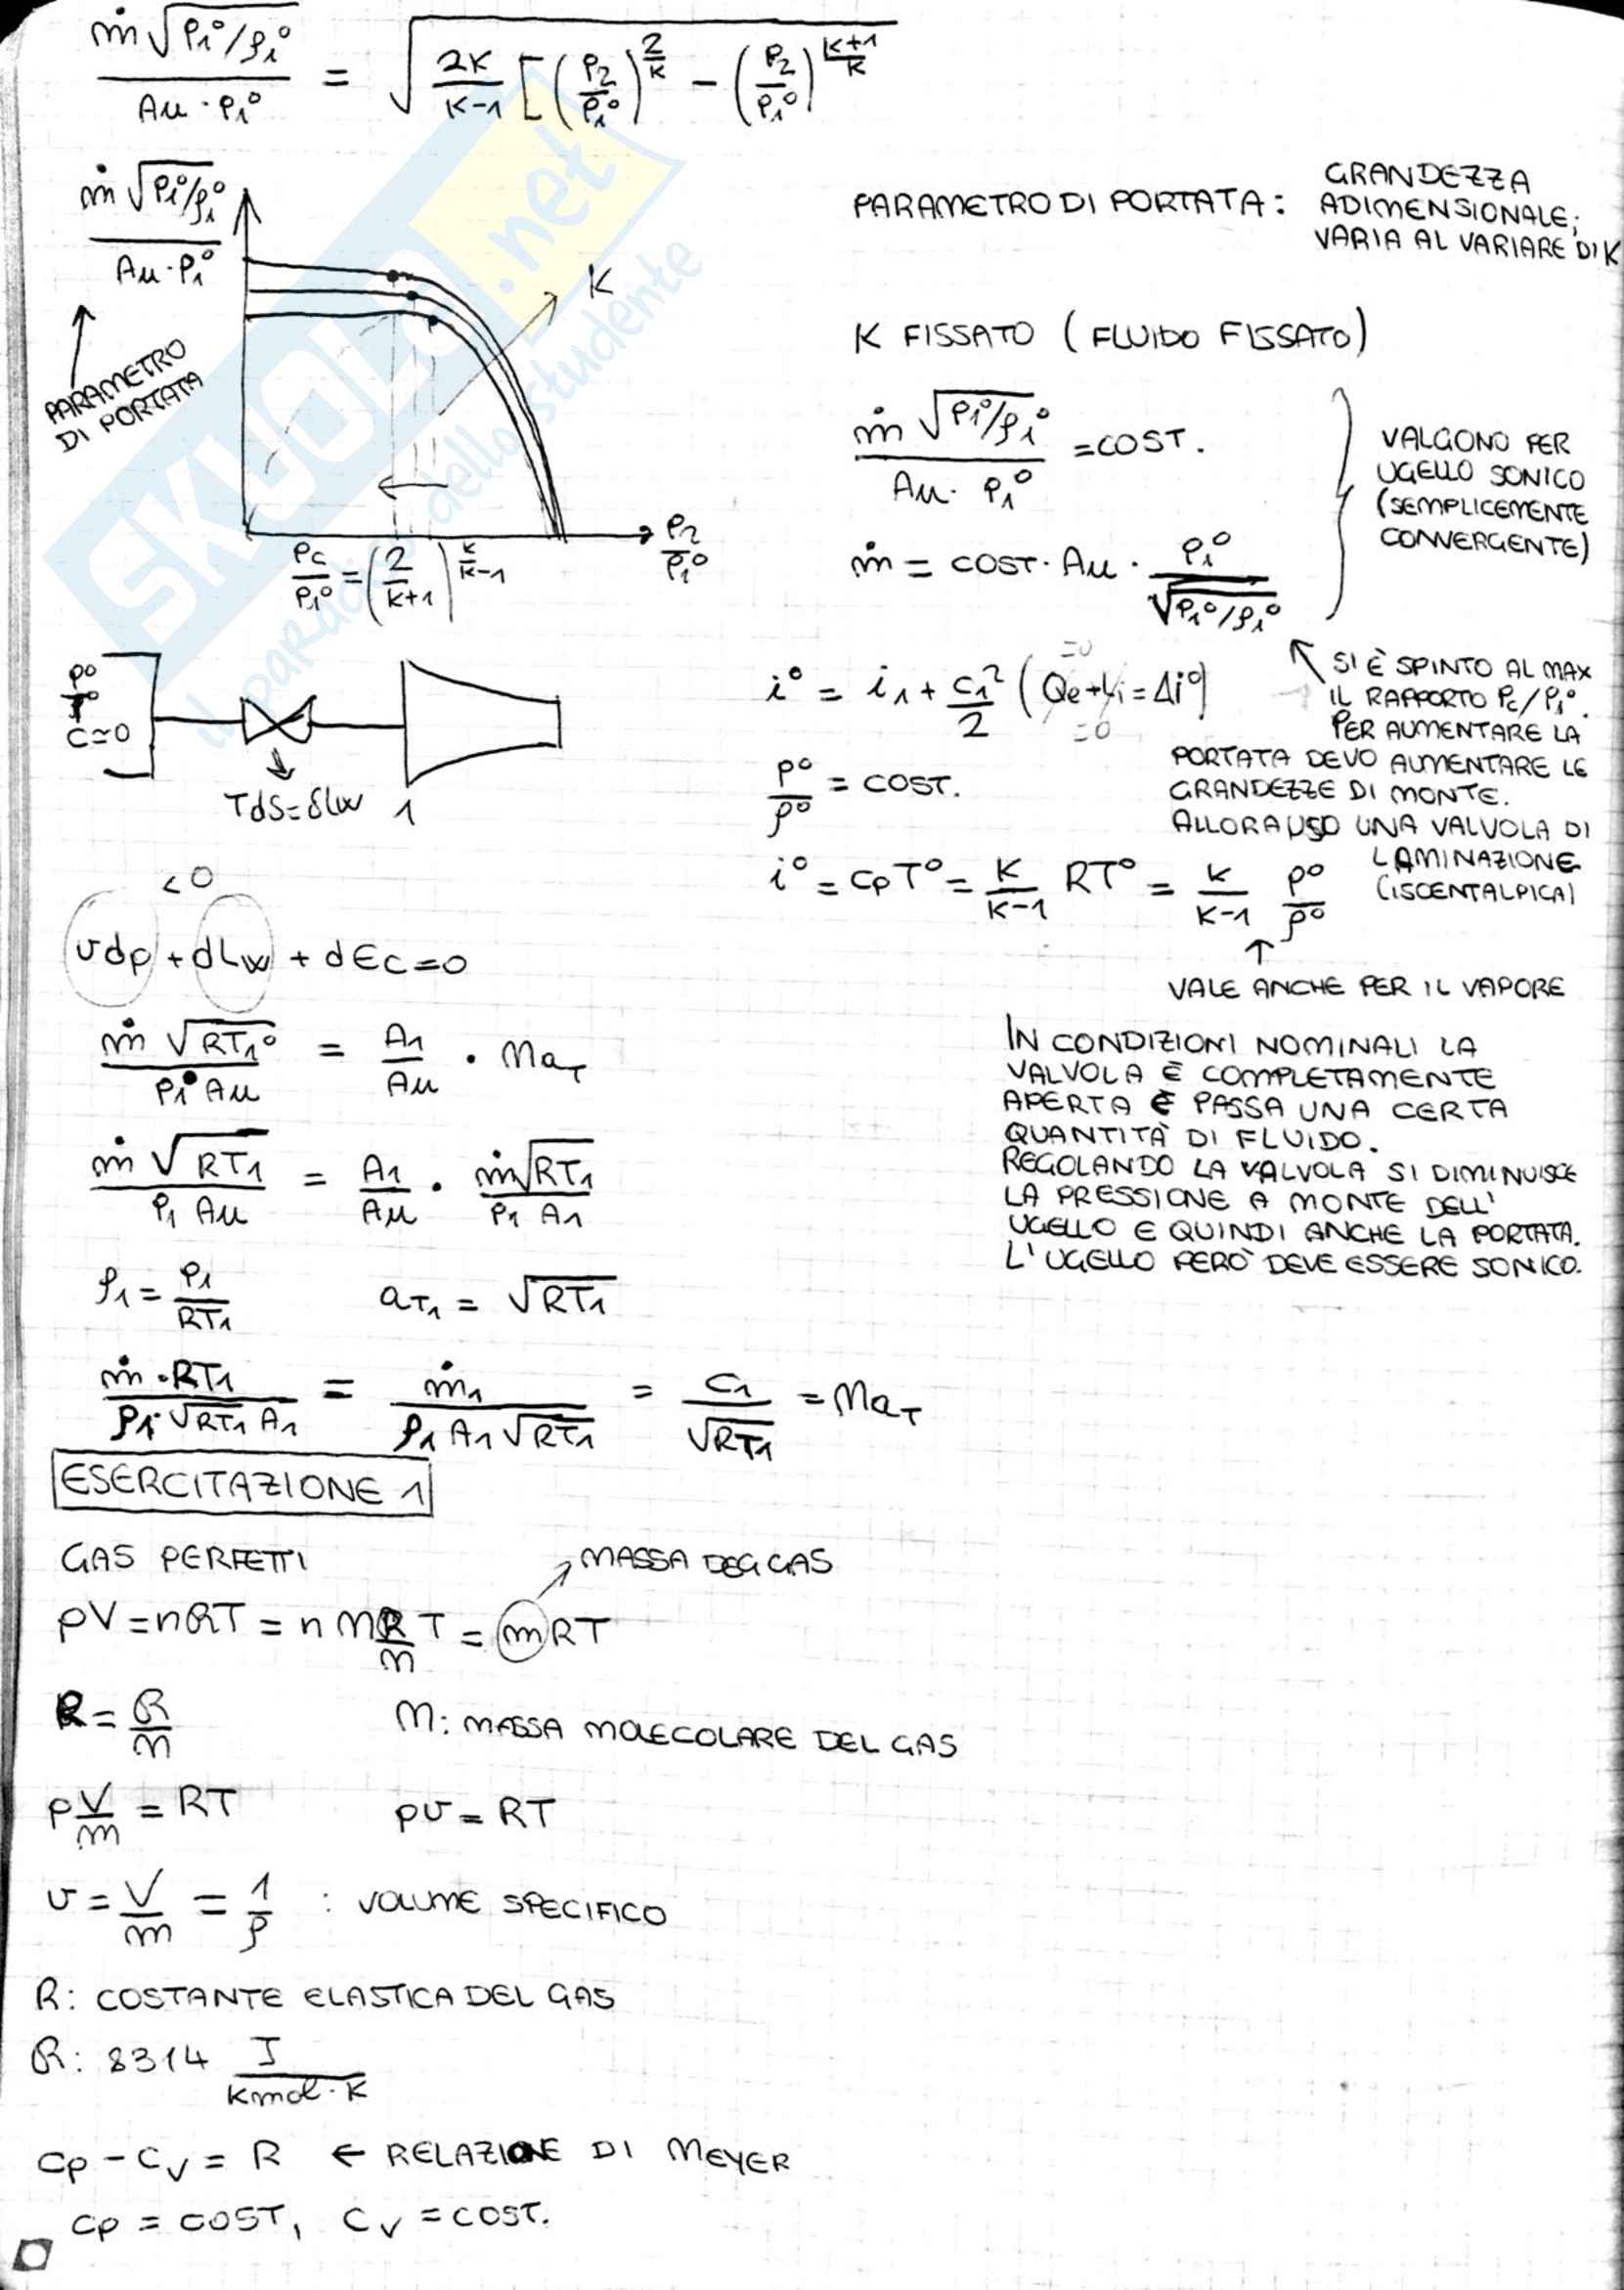 ṁ√(p₁°/ρ₁°) / (Au · p₁°) = √(2K/(K-1) [(p₂/p₁°)^(2/K) - (p₂/p₁°)^((K+1)/K)
ṁ√(p₁°/ρ₁°) / (Au · p₁°)
PARAMETRO DI PORTATA: GRANDEZZA
ADIMENSIONALE;
VARIA AL VARIARE DI K
K
PARAMETRO
DI PORTATA
K FISSATO (FLUIDO FISSATO)
ṁ√(p₁°/ρ₁°) / (Au · p₁°) = COST.
ṁ = COST · Au · p₁° / √(p₁°/ρ₁°)
VALGONO PER
UGELLO SONICO
(SEMPLICEMENTE
CONVERGENTE)
pc/p₁° = (2/(K+1))^(K/(K-1))
p₂/p₁°
SI È SPINTO AL MAX
IL RAPPORTO Pc/P₁°.
PER AUMENTARE LA
PORTATA DEVO AUMENTARE LE
GRANDEZZE DI MONTE.
ALLORA USO UNA VALVOLA DI
LAMINAZIONE
(ISOENTALPICA)
p°
T°
C≃0
TdS=δLw
1
i° = i₁ + c₁²/2 (Qe+Li=Δi°)
=0
=0
p°/ρ° = COST.
i° = cpT° = K/(K-1) RT° = K/(K-1) p°/ρ°
↑
VALE ANCHE PER IL VAPORE
<0
vdp + dLw + dEc=0
ṁ√(RT₁°) / (p₁° Au) = A₁/Au · MaT
ṁ√(RT₁) / (p₁ Au) = A₁/Au · ṁ√(RT₁) / (p₁ A₁)
ρ₁ = p₁/RT₁ aT₁ = √(RT₁)
ṁ·RT₁ / (p₁·√(RT₁) A₁) = ṁ₁ / (ρ₁ A₁ √(RT₁)) = C₁/√(RT₁) = MaT
IN CONDIZIONI NOMINALI LA
VALVOLA È COMPLETAMENTE
APERTA E PASSA UNA CERTA
QUANTITÀ DI FLUIDO.
REGOLANDO LA VALVOLA SI DIMINUISCE
LA PRESSIONE A MONTE DELL'
UGELLO E QUINDI ANCHE LA PORTATA.
L'UGELLO PERÒ DEVE ESSERE SONICO.
ESERCITAZIONE 1
GAS PERFETTI
MASSA DEL GAS
pV = nRT = n M R/M T = mRT
R = R/M M: MASSA MOLECOLARE DEL GAS
p V/m = RT pv = RT
v = V/m = 1/ρ : VOLUME SPECIFICO
R: COSTANTE ELASTICA DEL GAS
R: 8314 J/(Kmol·K)
cp - cv = R ← RELAZIONE DI MEYER
cp = COST, cv = COST.
SKUOLA.net
il paradiso dello studente